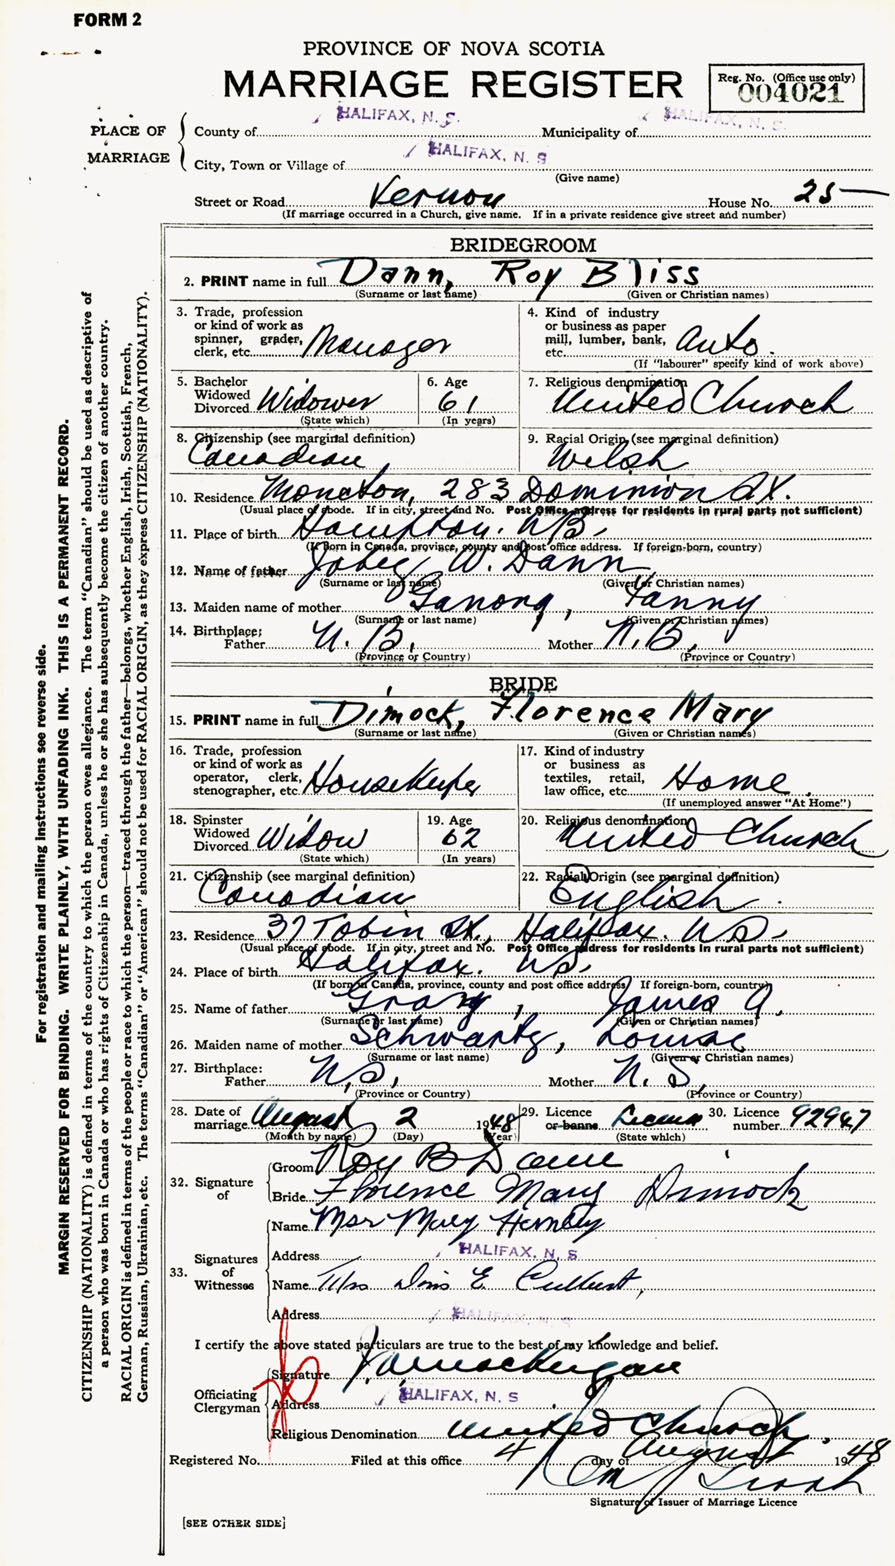 FORM 2
PROVINCE OF NOVA SCOTIA
MARRIAGE REGISTER
Reg. No. (Office use only)
004021
PLACE OF MARRIAGE
County of HALIFAX, N. S. Municipality of HALIFAX, N. S.
City, Town or Village of HALIFAX, N. S
(Give name)
Street or Road Vernon House No. 25
(If marriage occurred in a Church, give name. If in a private residence give street and number)
BRIDEGROOM
2. PRINT name in full Dann, Roy Bliss
(Surname or last name) (Given or Christian names)
3. Trade, profession or kind of work as spinner, grader, clerk, etc. Manager
4. Kind of industry or business as paper mill, lumber, bank, etc. Auto.
(If "labourer" specify kind of work above)
5. Bachelor Widowed Divorced Widower
(State which)
6. Age 61
(In years)
7. Religious denomination United Church
8. Citizenship (see marginal definition) Canadian
9. Racial Origin (see marginal definition) Welsh
10. Residence Moncton, 283 Dominion St.
(Usual place of abode. If in city, street and No. Post Office address for residents in rural parts not sufficient)
11. Place of birth Hampton. NB.
(If born in Canada, province, county and post office address. If foreign-born, country)
12. Name of father Jabez W. Dann
(Surname or last name) (Given or Christian names)
13. Maiden name of mother Ganong, Fanny
(Surname or last name) (Given or Christian names)
14. Birthplace: Father N. B. Mother N. B.
(Province or Country) (Province or Country)
BRIDE
15. PRINT name in full Dimock, Florence Mary
(Surname or last name) (Given or Christian names)
16. Trade, profession or kind of work as operator, clerk, stenographer, etc. Housekeeper
17. Kind of industry or business as textiles, retail, law office, etc. Home
(If unemployed answer "At Home")
18. Spinster Widowed Divorced Widow
(State which)
19. Age 62
(In years)
20. Religious denomination United Church
21. Citizenship (see marginal definition) Canadian
22. Racial Origin (see marginal definition) English
23. Residence 37 Tobin St., Halifax. N.S.
(Usual place of abode. If in city, street and No. Post Office address for residents in rural parts not sufficient)
24. Place of birth Halifax. N.S.
(If born in Canada, province, county and post office address. If foreign-born, country)
25. Name of father Gray, James A.
(Surname or last name) (Given or Christian names)
26. Maiden name of mother Schwartz, Louise
(Surname or last name) (Given or Christian names)
27. Birthplace: Father N.S. Mother N. S.
(Province or Country) (Province or Country)
28. Date of marriage August 2 1948
(Month by name) (Day) (Year)
29. Licence or banns License
(State which)
30. Licence number 92947
32. Signature of
Groom Roy B Dann
Bride Florence Mary Dimock
33. Signatures of Witnesses
Name Mary
Address HALIFAX, N. S
Name Mrs E.
Address HALIFAX, N. S
I certify the above stated particulars are true to the best of my knowledge and belief.
Officiating Clergyman
Signature
Address HALIFAX, N. S
Religious Denomination United Church.
Registered No. Filed at this office 4 day of August 1948
Signature of Issuer of Marriage Licence
[SEE OTHER SIDE]
For registration and mailing instructions see reverse side.
MARGIN RESERVED FOR BINDING. WRITE PLAINLY, WITH UNFADING INK. THIS IS A PERMANENT RECORD.
CITIZENSHIP (NATIONALITY) is defined in terms of the country to which the person owes allegiance. The term "Canadian" should be used as descriptive of
a person who was born in Canada or who has rights of Citizenship in Canada, unless he or she has subsequently become the citizen of another country.
RACIAL ORIGIN is defined in terms of the people or race to which the person—traced through the father—belongs, whether English, Irish, Scottish, French,
German, Russian, Ukrainian, etc. The terms "Canadian" or "American" should not be used for RACIAL ORIGIN, as they express CITIZENSHIP (NATIONALITY).